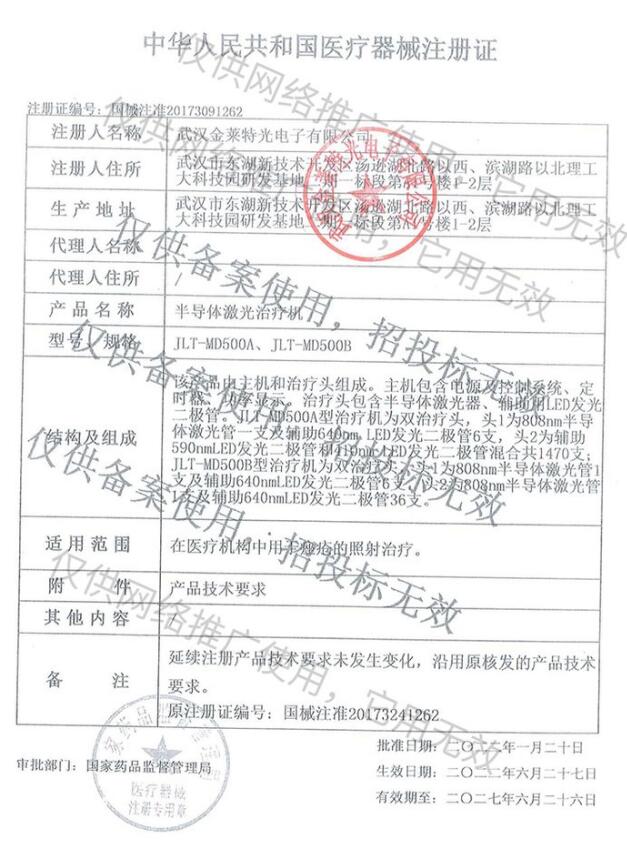 中华人民共和国医疗器械注册证
注册证编号：国械注准20173091262
注册人名称 武汉金莱特光电子有限公司
注册人住所 武汉市东湖新技术开发区汤逊湖北路以西、滨湖路以北理工
大科技园研发基地一期一标段第 号楼1-2层
生产地址 武汉市东湖新技术开发区汤逊湖北路以西、滨湖路以北理工
大科技园研发基地一期一标段第 号楼1-2层
代理人名称 /
代理人住所 /
产品名称 半导体激光治疗机
型号、规格 JLT-MD500A、JLT-MD500B
结构及组成
该产品由主机和治疗头组成。主机包含电源及控制系统、定
时器、功率显示。治疗头包含半导体激光器、辅助用LED发光
二极管。JLT-MD500A型治疗机为双治疗头，头1为808nm半导
体激光管一支及辅助640nm LED发光二极管6支，头2为辅助
590nmLED发光二极管和410nm LED发光二极管混合共1470支；
JLT-MD500B型治疗机为双治疗头，头1为808nm半导体激光管1
支及辅助640nmLED发光二极管6支，头2为808nm半导体激光管
1支及辅助640nmLED发光二极管36支。
适用范围 在医疗机构中用于痤疮的照射治疗。
附 件 产品技术要求
其他内容 /
备 注
延续注册产品技术要求未发生变化，沿用原核发的产品技术
要求。
原注册证编号：国械注准20173241262
审批部门：国家药品监督管理局
批准日期：二〇二二年一月二十日
生效日期：二〇二二年六月二十七日
有效期至：二〇二七年六月二十六日
国家药品监督管理局
医疗器械
注册专用章
武汉金莱特光电子有限公司
仅供网络推广使用，它用无效
仅供网络推广使用，它用无效
仅供备案使用，招投标无效
仅供备案使用，招投标无效
仅供备案使用，招投标无效
仅供网络推广使用，它用无效